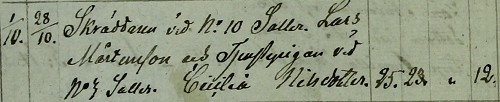 1/10. 28/10. Skräddaren vid No 10 Saller. Lars
Mårtensson och Tjenstepigan vid
No 3 Saller. Cecilia Nilsdotter. 25. 23. " 12.